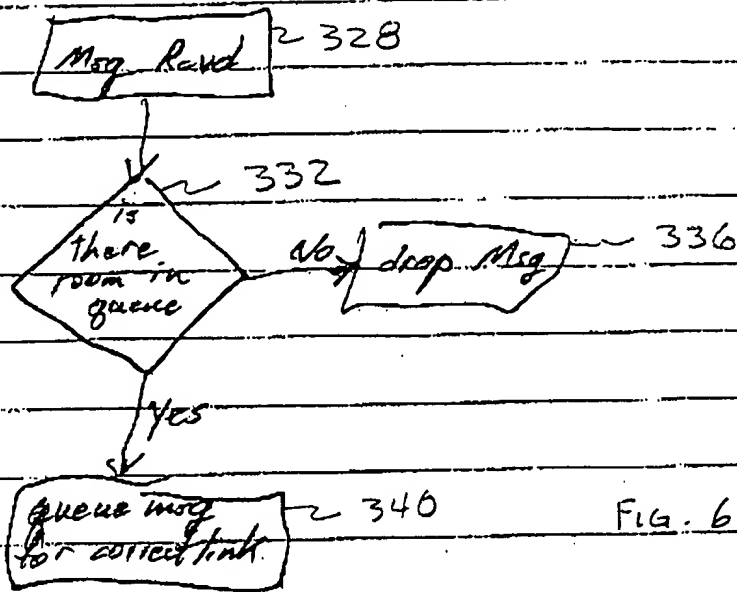 Msg Rcvd
328
332
is
there
room in
queue
No
drop Msg
336
Yes
queue msg
for correct link
340
FIG. 6